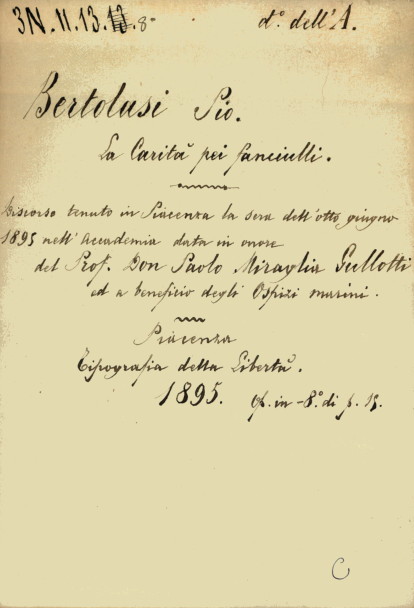 3N. 11. 13. 8° d.° dell'A.
Bertolusi Pio.
La Carità pei fanciulli.
Discorso tenuto in Piacenza la sera dell'otto giugno
1895 nell'Accademia data in onore
del Prof. Don Paolo Miraglia Gullotti
ed a beneficio degli Ospizi marini.
Piacenza
Tipografia della Libertà.
1895. Op. in-8° di p. 15.
C